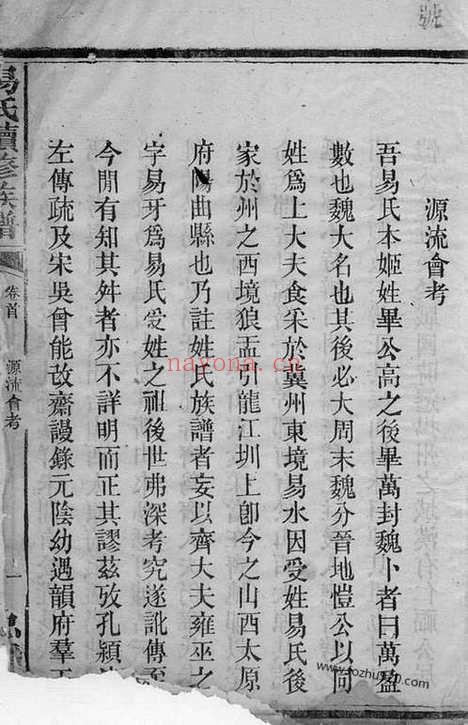 源流會考
吾易氏本姬姓畢公高之後畢萬封魏卜者曰萬盈
數也魏大名也其後必大周末魏分晉地愷公以同
姓爲上大夫食采於冀州東境易水因受姓易氏後
家於州之西境狼盂引龍江圳上卽今之山西太原
府陽曲縣也乃註姓氏族譜者妄以齊大夫雍巫之
字易牙爲易氏受姓之祖後世弗深考究遂訛傳至
今閒有知其舛者亦不詳明而正其謬茲攷孔穎
左傳疏及宋吳曾能攺齋謾錄元陰幼遇韻府羣
易氏續修族譜
卷首
源流會考
一
nayona.cn